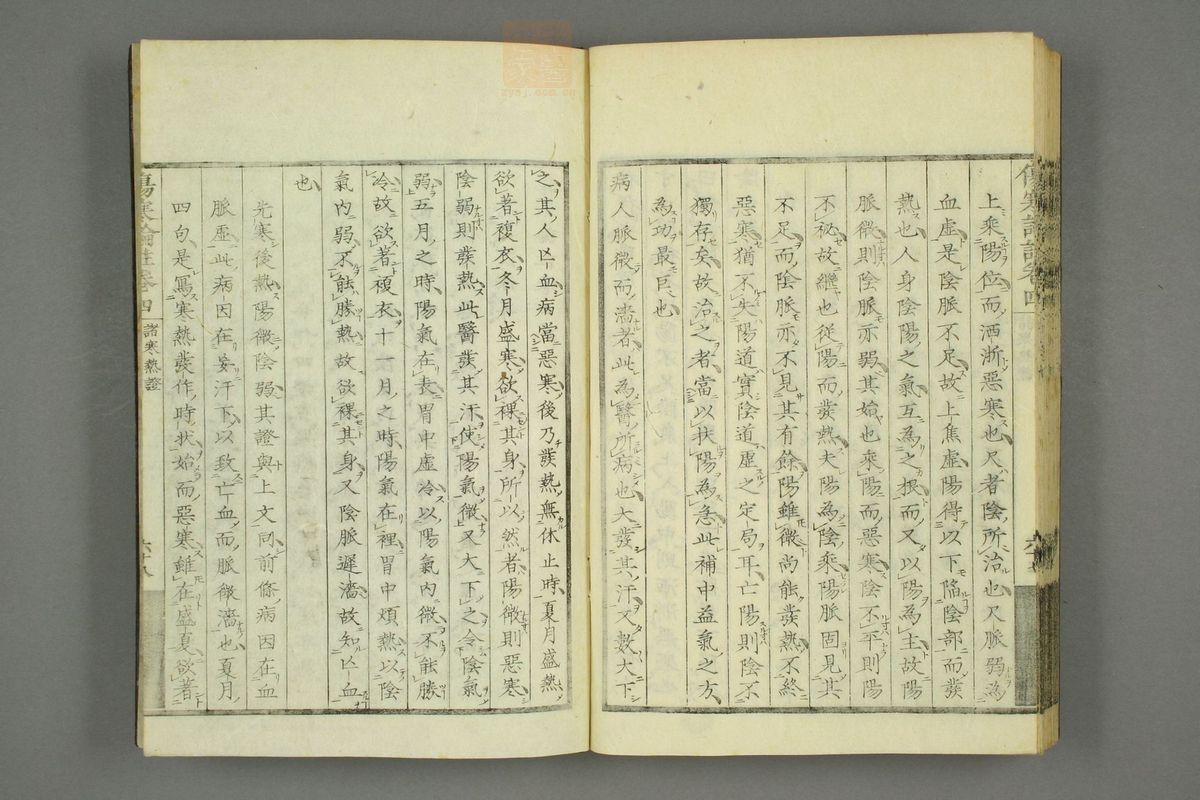 上乘陽位而洒淅惡寒也尺者陰所治也尺脈弱為
血虛是陰脈不足故上焦虛陽得以下陷陰部而發
熱也人身陰陽之氣互為之根而又以陽為主故陽
脈微則陰脈亦弱其始也來陽而惡寒陰不平則陽
不祕故繼也從陽而發熱夫陽為陰乘陽脈固見其
不足而陰脈亦不見其有餘陽雖微尚能發熱不終
惡寒猶不失陽道實陰道虛之定局耳亡陽則陰不
獨存矣故治之者當以扶陽為急此補中益氣之方
為功最巨也
病人脈微而濇者此為醫所病也大發其汗又數大下
之其人亡血病當惡寒後乃發熱無休止時夏月盛熱
欲著複衣冬月盛寒欲裸其身所以然者陽微則惡寒
陰弱則發熱此醫發其汗使陽氣微又大下之令陰氣
弱五月之時陽氣在表胃中虛冷以陽氣內微不能勝
冷故欲著複衣十一月之時陽氣在裡胃中煩熱以陰
氣內弱不能勝熱故欲裸其身又陰脈遲濇故知亡血
也
先寒後熱陽微陰弱其證與上文同前條病因在血
脈虛此病因在妄汗下以致亡血而脈微濇也夏月
四句是寫寒熱發作時狀始而惡寒雖在盛夏欲著
傷寒論註卷四
諸寒熱證
六十八